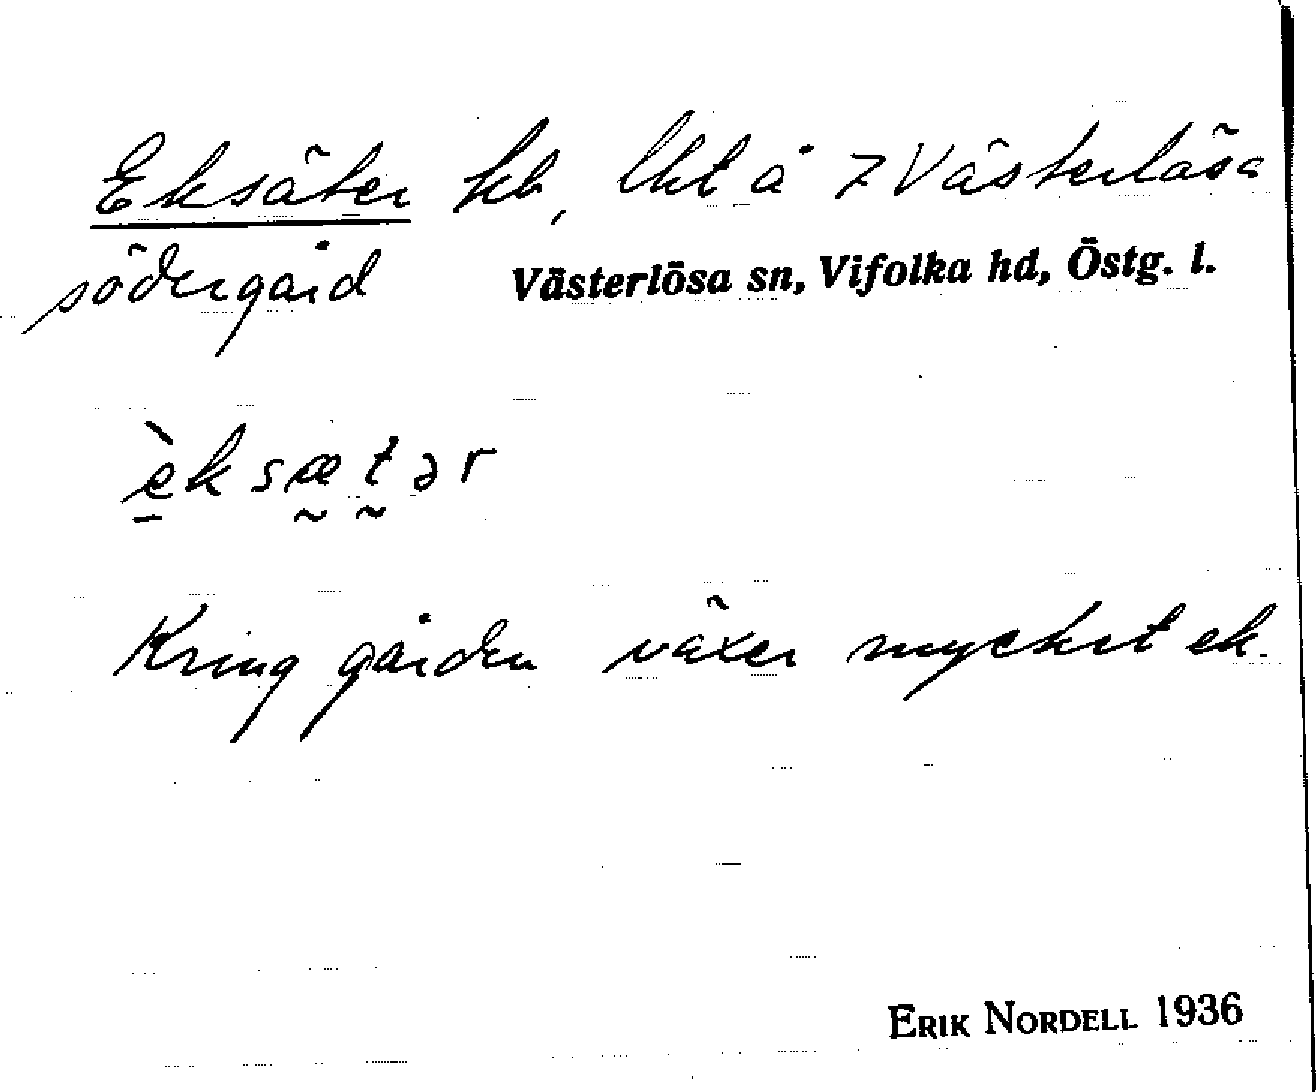 Eksäter hb, lht å 7 Västerlösa
södergård
Västerlösa sn, Vifolka hd, Östg. l.
è̱ksæ̰t̰ər
Kring gården växer mycket ek.
ERIK NORDELL 1936